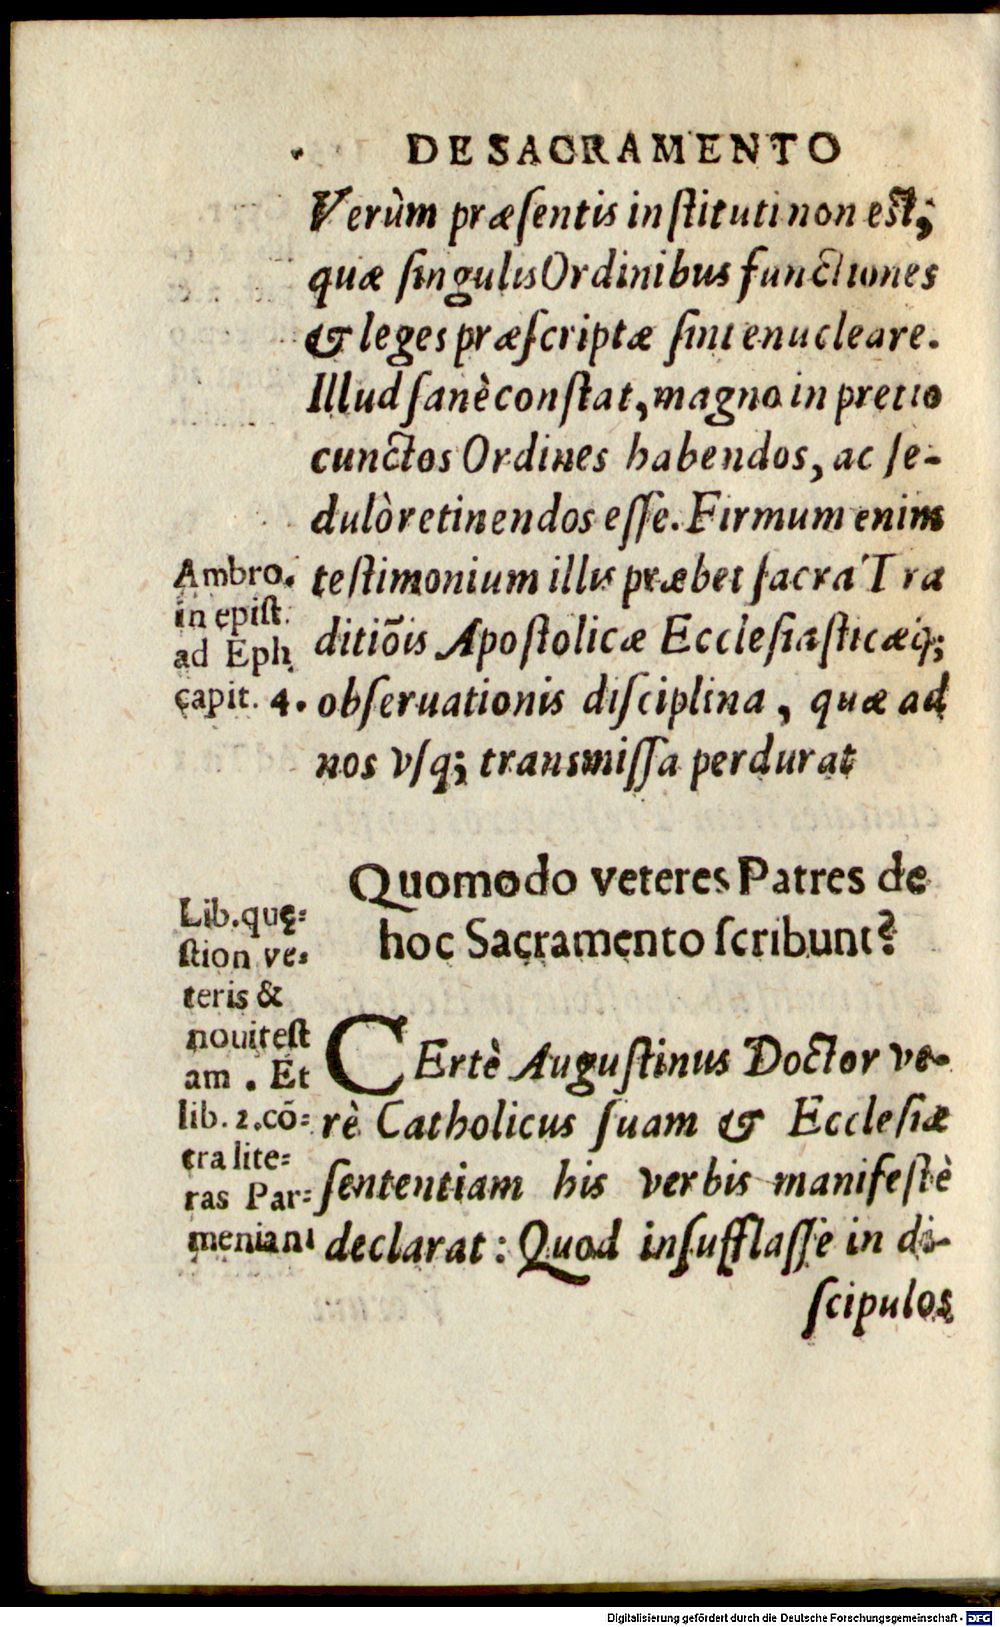 DE SACRAMENTO
Verùm præſentis inſtituti non eſt;
quæ ſingulis Ordinibus functiones
& leges præſcriptæ ſint enucleare.
Illud ſanè conſtat, magno in pretio
cunctos Ordines habendos, ac ſe-
dulò retinendos eſſe. Firmum enim
teſtimonium illis præbet ſacra Tra
ditiõis Apoſtolicæ Eccleſiaſticæq́;
obſeruationis diſciplina, quæ ad
nos vſq; transmiſſa perdurat
Ambro.
in epiſt.
ad Eph
capit. 4.
Quomodo veteres Patres de
hoc Sacramento ſcribunt?
Lib. quę-
ſtion ve-
teris &
noui teſt
am. Et
lib. 2. cõ-
tra lite-
ras Par-
meniani
CErtè Auguſtinus Doctor ve-
rè Catholicus ſuam & Eccleſiæ
ſententiam his verbis manifeſtè
declarat: Quod inſufflaſſe in di-
ſcipulos
Digitalisierung gefördert durch die Deutsche Forschungsgemeinschaft - DFG